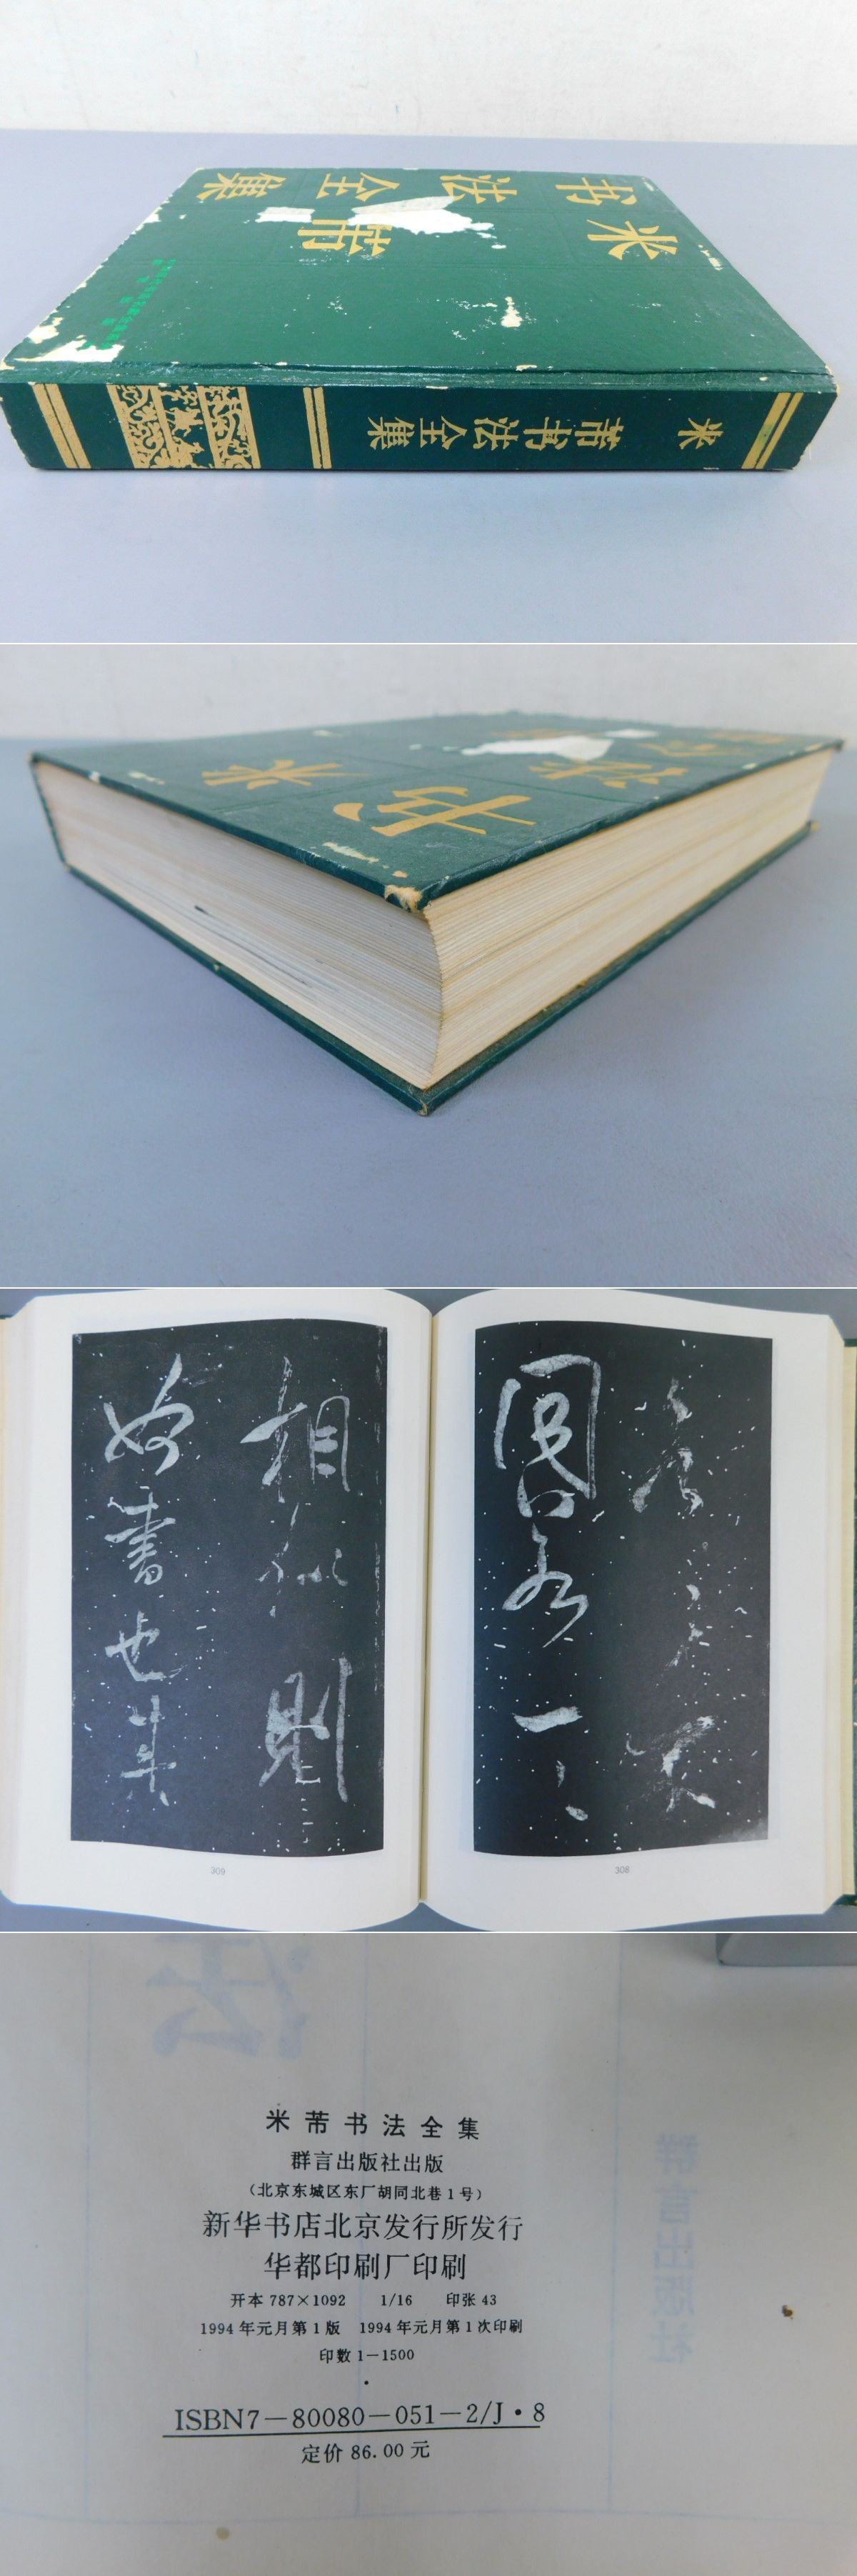 米芾
书法全集
米芾书法全集
米
书法
相似則
好書也
309
308
米芾书法全集
群言出版社出版
（北京东城区东厂胡同北巷1号）
新华书店北京发行所发行
华都印刷厂印刷
开本 787×1092 1/16 印张 43
1994年元月第1版 1994年元月第1次印刷
印数 1—1500
ISBN7—80080—051—2/J·8
定价 86.00 元
法
群言出版社